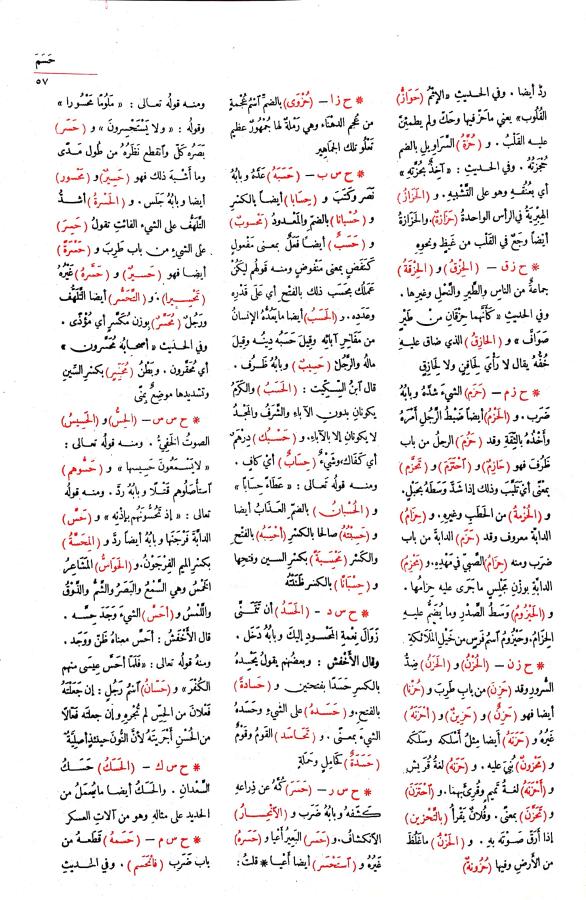 حَسَمَ
٥٧
ردَّ أيضا . وفي الحديثِ «الإثْمُ (حَوَازُّ)
القُلُوبِ» يعني ماحَزَّ فيها وحَكَّ ولم يطمئنَّ
عليه القَلْبُ . و (حُزَّةُ) السَّرَاوِيلِ بالضم
حُجْزَتُهُ . وفي الحديث : « آخِذٌ بِحُزَّتِهِ »
أي بِعُنُقِهِ وهو على التَّشْبِيهِ . و (الحَزَازُ)
الهِبْرِيَةُ في الرأس الواحدةُ (حَزَازَةٌ). والحَزَازَةُ
أيضاً وجَعٌ في القَلْبِ من غَيْظٍ ونحوِهِ
* ح ز ق – (الحِزْقُ) و (الحِزْقَةُ)
جماعةٌ من الناسِ والطَّيْرِ والنَّحْلِ وغيرها .
وفي الحديث «كَأَنَّهُما حِزْقَانِ مِنْ طَيْرٍ
صَوَافَّ» و (الحازِقُ) الذي ضاق عليهِ
خُفُّهُ يقال لا رَأْيَ لِحَاقِنٍ ولا لِحَازِقٍ
* ح ز م – (حَزَمَ) الشيءَ شَدَّهُ وبابُهُ
ضَرَبَ . و (الحَزْمُ) أيضاً ضَبْطُ الرَّجُلِ أَمْرَهُ
وأَخْذُهُ بالثِّقَةِ وقد (حَزُمَ) الرجلُ من باب
ظَرُفَ فهو (حَازِمٌ) و (احْتَزَمَ) و (تَحَزَّمَ)
بمعنًى أي تَلَبَّبَ وذلك إذا شَدَّ وَسَطَهُ بِحَبْلٍ.
و (الحُزْمَةُ) من الحَطَبِ وغيرِهِ . و (حِزَامُ)
الدابَّةِ معروف وقد (حَزَمَ) الدابةَ من باب
ضَرَبَ ومنه (حِزَامُ) الصَّبِيِّ في مَهْدِهِ. و (مَحْزِمُ)
الدابّةِ بوزن مَجْلِسٍ ما جَرَى عليه حِزَامُها .
و (الحَيْزُومُ) وَسَطُ الصَّدْرِ وما يُضَمُّ عليهِ
الحِزَامُ. وحَيْزُومُ اسمُ فَرَسٍ من خَيْلِ المَلائكةِ
* ح ز ن – (الحُزْنُ) و (الحَزَنُ) ضِدُّ
السُّرورِ وقد (حَزِنَ) من باب طَرِبَ و (حُزْنا)
أيضا فهو (حَزِنٌ) و (حَزِينٌ) و (أَحْزَنَهُ)
غَيْرُهُ و (حَزَنَهُ) أيضا مِثْلُ أَسْلَكَه وسَلَكَه
و (مَحْزُونٌ) بُنِيَ عليه . و (حَزَنَهُ) لغةُ قُرَيْشٍ
و (أَحْزَنَهُ) لغةُ تَمِيمٍ وقُرِئَ بهما. و (احْتَزَنَ)
و (تَحَزَّنَ) بمعنًى . وفُلانٌ يَقْرَأُ (بالتَّحْزِينِ)
إذا أَرَقَّ صَوْتَهُ به . و (الحَزْنُ) ماغَلُظَ
من الأرضِ وفيها (حُزُونةٌ)
* ح ز ا – (حُزْوَى) بالضمِّ اسمُ عُجْمَةٍ
من عُجَمِ الدَّهْناءِ وهي رَمْلةٌ لها جُمْهُورٌ عظيم
تَعْلُو تلك الجَمَاهِيرَ
* ح س ب – (حَسَبَهُ) عَدَّهُ وبابُهُ
نَصَرَ وكَتَبَ و (حِسَابا) أيضا بالكسر
و (حُسْبَانا) بالضم والمَعْدُودُ (مَحْسُوبٌ)
و (حَسَبٌ) أيضا فَعَلٌ بمعنى مَفْعُولٍ
كنَفَضٍ بمعنى مَنْفُوضٍ ومنه قولُهم لِيَكُنْ
عَمَلُكَ بِحَسَبِ ذلك بالفتح أي على قَدْرِهِ
وعَدَدِهِ . و (الحَسَبُ) أيضا مايَعُدُّهُ الإنسانُ
من مَفَاخِرِ آبائِهِ وقيلَ حَسَبُهُ دِينُهُ وقيلَ
مالُهُ والرَّجُلُ (حَسِيبٌ) وبابُهُ ظَرُفَ .
قال ابنُ السِّكِّيتِ : (الحَسَبُ) والكَرَمُ
يكونانِ بدونِ الآباءِ والشَّرَفُ والمَجْدُ
لا يكونانِ إلا بالآباءِ. و (حَسْبُكَ) دِرْهَمٌ
أي كَفَاكَ. وشيءٌ (حِسَابٌ) أي كافٍ .
ومنه قولُه تعالى : « عَطَاءً حِسَاباً »
و (الحُسْبَانُ) بالضمِّ العَذَابُ أيضا
و (حَسِبْتُهُ) صالحا بالكسر (أَحْسَبُهُ) بالفتح
والكسر (مَحْسَبَةً) بكسر السين وفتحها
و (حِسْبَانًا) بالكسر ظَنَنْتُهُ
* ح س د – (الحَسَدُ) أن تَتَمَنَّى
زَوَالَ نِعْمةِ المَحْسودِ إليكَ وبابُهُ دَخَلَ .
وقال الأَخْفَشُ : وبعضُهم يقولُ يَحْسِدُه
بالكسرِ حَسَدًا بفتحتين و (حَسَادةً)
بالفتح. و (حَسَدَه) على الشيءِ وحَسَدَهُ
الشيءَ بمعنًى . و (تَحَاسَدَ) القومُ وقَوْمٌ
(حَسَدَةٌ) كحَامِلٍ وحَمَلةٍ
* ح س ر – (حَسَرَ) كُمَّهُ عن ذِراعِهِ
كَشَفَهُ وبابُهُ ضَرَبَ و (الانْحِسَارُ)
الانكشافُ. و (حَسَرَ) البعيرُ أَعْيا و (حَسَرَهُ)
غَيْرُهُ و (اسْتَحْسَرَ) أيضا أَعْيا * قلتُ :
ومنه قولُه تعالى : « مَلُومًا مَحْسُورا »
وقولُه : « ولا يَسْتَحْسِرونَ » و (حَسَرَ)
بَصَرُه كَلَّ وانقطع نَظَرُهُ من طُولِ مَدًى
وما أَشْبَهَ ذلك فهو (حَسِيرٌ) و (مَحْسورٌ)
أيضا وبابُهُ جَلَسَ . و (الحَسْرَةُ) أَشَدُّ
التَّلَهُّفِ على الشيءِ الفائتِ تقولُ (حَسِرَ)
على الشيءِ من باب طَرِبَ و (حَسْرَةً)
أيضا فهو (حَسِيرٌ) و (حَسَّرَهُ) غَيْرُهُ
(تَحْسِيرا). و (التَّحَسُّرُ) أيضا التَّلَهُّفُ
ورَجُلٌ (مُحَسَّرٌ) بوزن مُكَسَّرٍ أي مُؤْذًى .
وفي الحديث « أصحابُهُ مُحَسَّرون »
أي مُحَقَّرون . وبَطْنُ (مُحَسِّرٍ) بكسرِ السينِ
وتشديدها موضعٌ بِمِنًى
* ح س س – (الحِسُّ) و (الحَسِيسُ)
الصوتُ الخَفِيُّ . ومنه قولُه تعالى :
«لا يَسْمَعُونَ حَسِيسَها» و (حَسُّوهم)
استأصَلُوهم قَتْلا وبابُهُ ردَّ . ومنه قولُهُ
تعالى : « إذ تَحُسُّونَهُمْ بِإذْنِهِ » و (حَسَّ)
الدابّةَ فَرْجَنَها وبابُهُ أيضاً ردَّ و (المِحَسَّةُ)
بكسرِ الميمِ الفِرْجَوْنُ. و (الحَوَاسُّ) المَشَاعِرُ
الخَمْسُ وهي السَّمْعُ والبَصَرُ والشَّمُّ والذَّوْقُ
واللَّمْسُ و (أَحَسَّ) الشيءَ وَجَدَ حِسَّه .
قال الأَخْفَشُ : أَحَسَّ معناه ظَنَّ ووَجَدَ .
ومنهُ قولُه تعالى : «فَلمَّا أَحَسَّ عِيسَى منهم
الكُفْرَ» و (حَسَّانُ) اسمُ رَجُلٍ : إن جَعَلْتَهُ
فَعْلانَ من الحِسِّ لم تُجْرِهِ وإن جعلته فَعَّالا
من الحُسْنِ أَجْرَيْتَهُ لأنّ النُّونَ حينئذٍ أصليّةٌ
* ح س ك – (الحَسَكُ) حَسَكُ
السَّعْدانِ . والحَسَكُ أيضا مايُعْمَلُ من
الحديدِ على مثالِهِ وهو من آلاتِ العسكرِ
* ح س م – (حَسَمَهُ) قَطَعَهُ من
باب ضَرَبَ (فانْحَسَمَ) . وفي الحديثِ